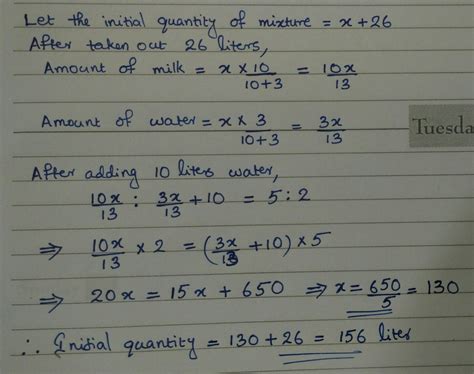 Let the initial quantity of mixture = x + 26
After taken out 26 liters,
Amount of milk = x × 10/10+3 = 10x/13
Amount of water = x × 3/10+3 = 3x/13
Tuesda
After adding 10 liters water,
10x/13 : 3x/13 + 10 = 5 : 2
⇒ 10x/13 × 2 = (3x/13 + 10) × 5
⇒ 20x = 15x + 650 ⇒ x = 650/5 = 130
∴ Initial quantity = 130 + 26 = 156 liter